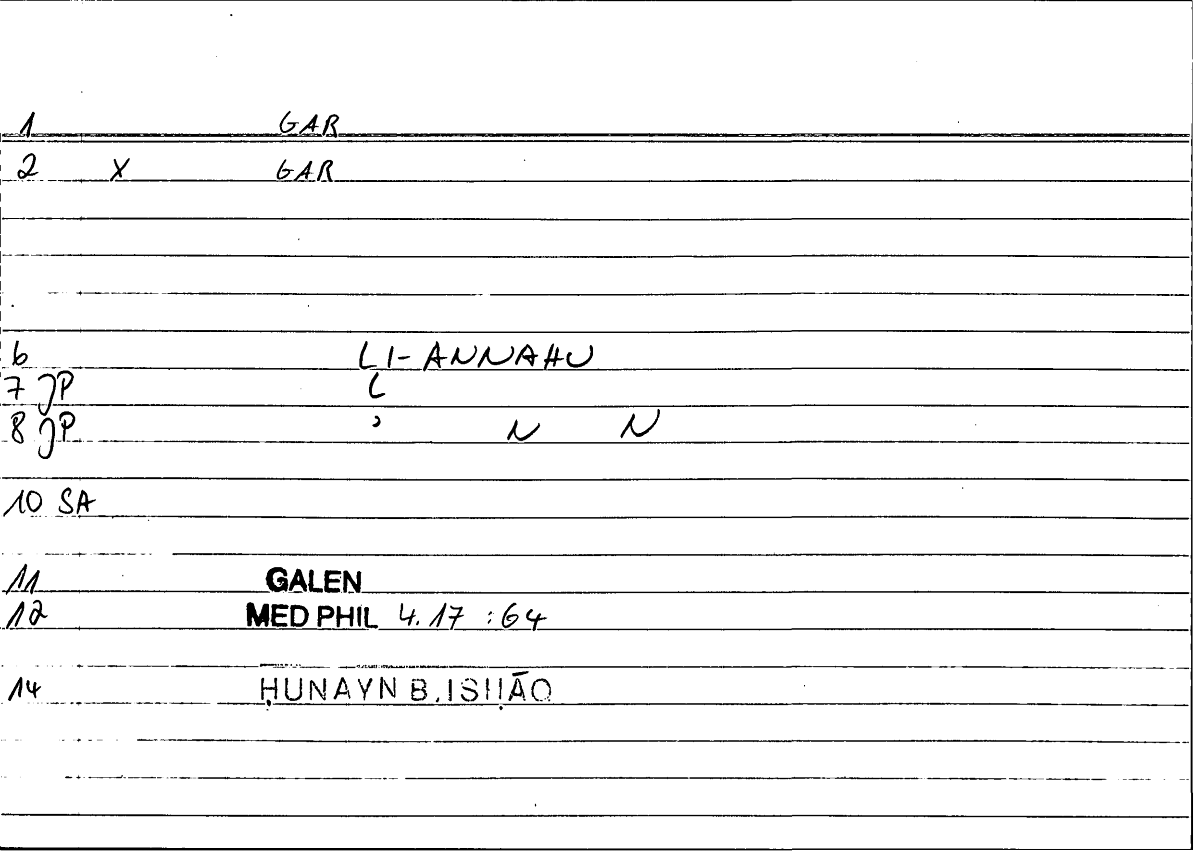 1 GAR
2 X GAR
6 LI-ANNAHU
7 JP L
8 JP ʾ N N
10 SA
11 GALEN
12 MED PHIL 4.17 :64
14 ḤUNAYN B. ISḤĀQ